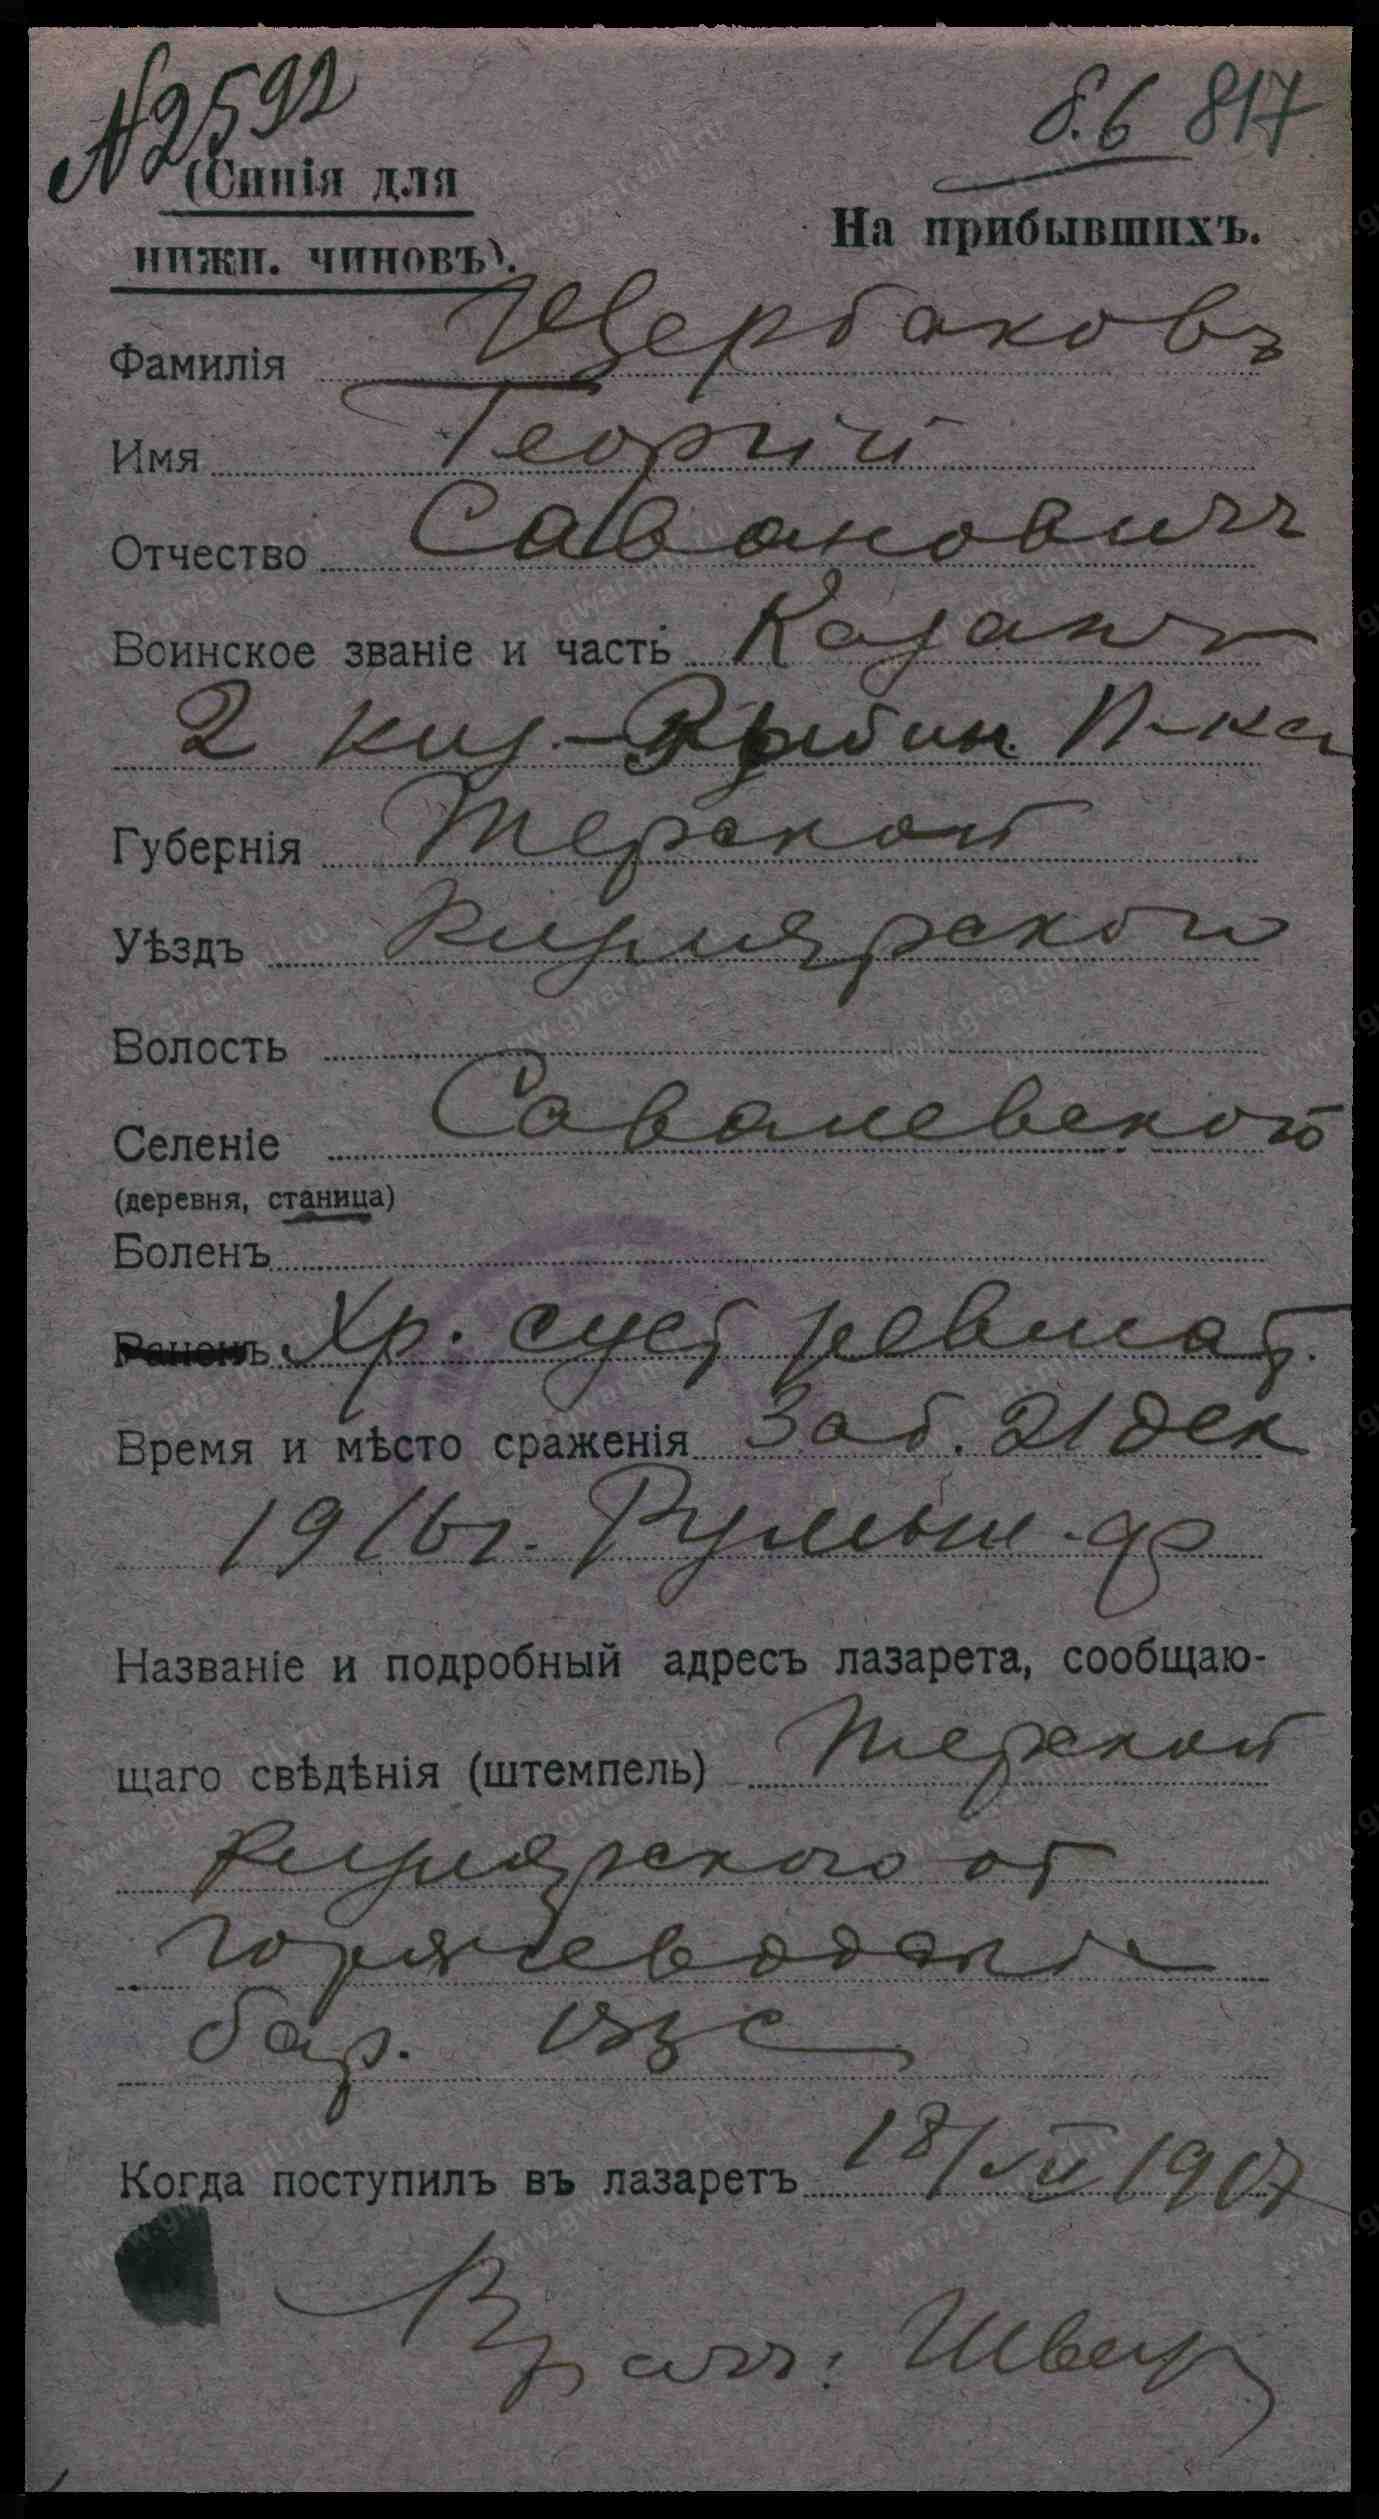 № 2592
8.6 817
(Синія для
нижн. чиновъ).
На прибывшихъ.
Фамилія Щербаковъ
Имя Георгій
Отчество Савановичъ
Воинское званіе и часть Казакъ
2 Киз.- П-ка
Губернія Терской
Уѣздъ Кизлярского
Волость
Селеніе Савалевской
(деревня, станица)
Боленъ
Раненъ Хр. суст ревмат.
Время и мѣсто сраженія Заб. 21 дек
1916 г. Румын. фр
Названіе и подробный адресъ лазарета, сообщаю-
щаго свѣдѣнія (штемпель) Терской
Кизлярского от
бар. ВЗС
Когда поступилъ въ лазаретъ 18/VII 1917
Врачъ: